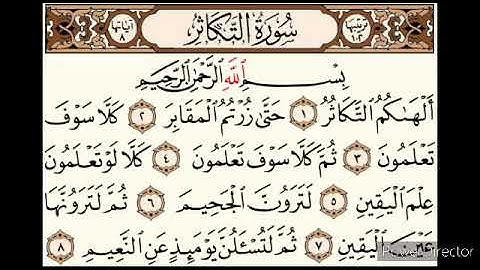 ترتيبها ١٠٢ سُورَةُ التَّكَاثُرِ آياتها ٨
بِسْمِ اللَّهِ الرَّحْمَٰنِ الرَّحِيمِ
أَلْهَىٰكُمُ ٱلتَّكَاثُرُ ١ حَتَّىٰ زُرْتُمُ ٱلْمَقَابِرَ ٢ كَلَّا سَوْفَ
تَعْلَمُونَ ٣ ثُمَّ كَلَّا سَوْفَ تَعْلَمُونَ ٤ كَلَّا لَوْ تَعْلَمُونَ
عِلْمَ ٱلْيَقِينِ ٥ لَتَرَوُنَّ ٱلْجَحِيمَ ٦ ثُمَّ لَتَرَوُنَّهَا
عَيْنَ ٱلْيَقِينِ ٧ ثُمَّ لَتُسْـَٔلُنَّ يَوْمَئِذٍ عَنِ ٱلنَّعِيمِ ٨
PowerDirector